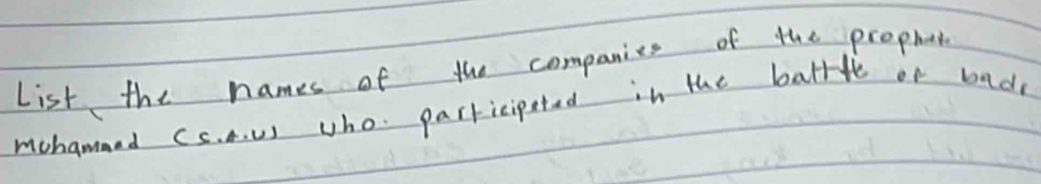 List the names of the companies of the prophet
mohammed (s.a.w) who participated in the battle of badr